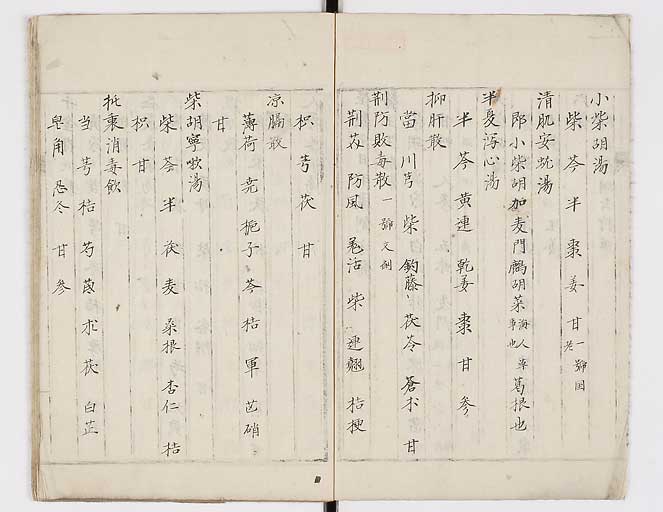 小柴胡湯
柴 芩 半 棗 姜 甘
清肌安蚘湯
即小柴胡加麦門鷓胡菜 葛根也
半夏泻心湯
半 芩 黄連 乾姜 棗 甘 参
抑肝散
當 川芎 柴 釣藤 茯苓 蒼朮 甘
荆防敗毒散
荆芥 防風 羌活 柴 連翹 桔梗
枳 芎 茯 甘
凉膈散
薄荷 梔子 芩 桔 軍 芒硝
甘
柴胡寧嗽湯
柴 芩 半 茯 麦 桑根 杏仁 桔
枳 甘
托裏消毒飲
当 芎 桔 芍 朮 茯 白芷
皂角 忍冬 甘 参